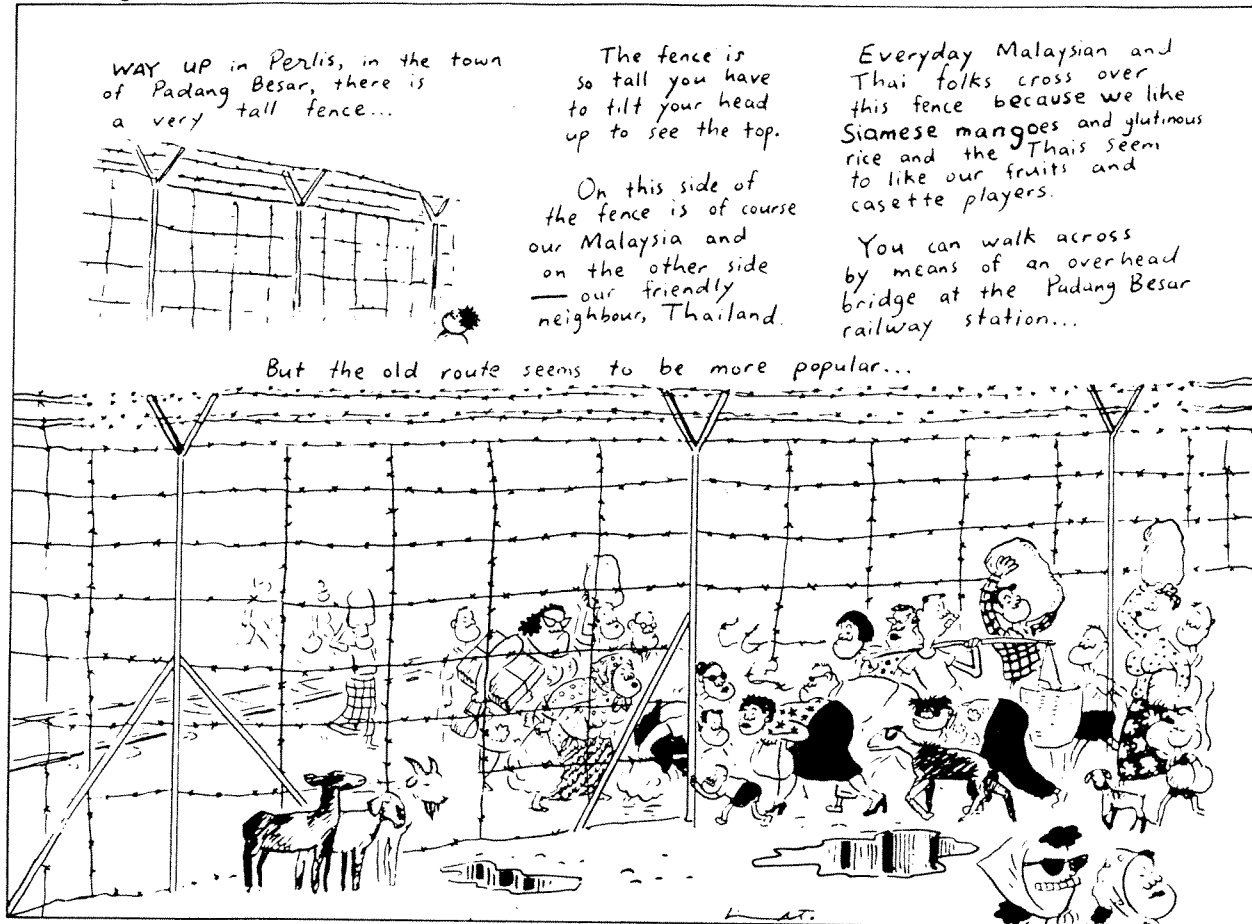 WAY UP in Perlis, in the town
of Padang Besar, there is
a very tall fence...
The fence is
so tall you have
to tilt your head
up to see the top.
On this side of
the fence is of course
our Malaysia and
on the other side
— our friendly
neighbour, Thailand.
Everyday Malaysian and
Thai folks cross over
this fence because we like
Siamese mangoes and glutinous
rice and the Thais seem
to like our fruits and
casette players.
You can walk across
by means of an overhead
bridge at the Padang Besar
railway station...
But the old route seems to be more popular...
Lat.